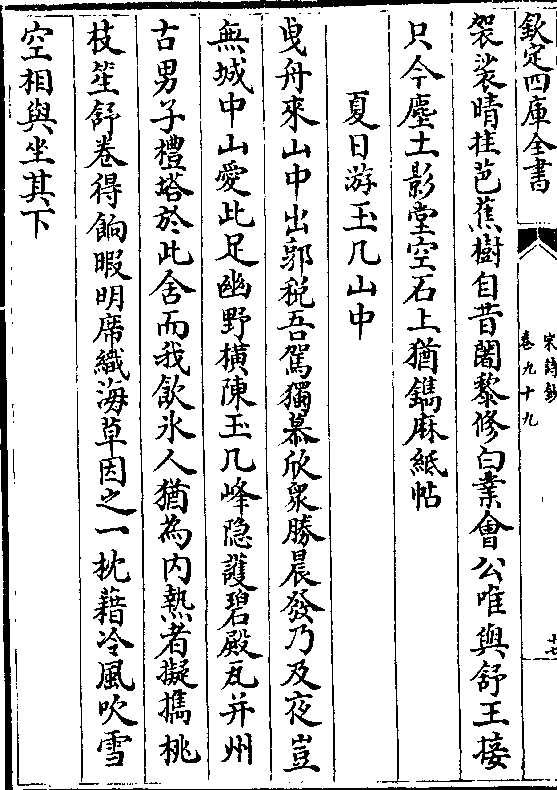 欽定四庫全書
宋詩鈔
卷九十九
十七
袈裟晴挂芭蕉樹自昔闍黎修白業會公唯與舒王接
只今塵土影堂空石上猶鐫麻紙帖
夏日游玉几山中
曵舟來山中出郭稅吾駕獨慕欣衆勝晨發乃及夜豈
無城中山愛此足幽野横陳玉几峰隐護碧殿瓦并州
古男子禮塔於此舍而我飲氷人猶為内熱者擬攜桃
枝笙舒卷得餉暇明席織海草因之一枕藉冷風吹雪
空相與坐其下